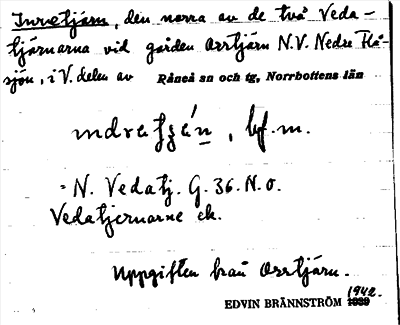 Inretjärn, den norra av de två Veda-
tjärnarna vid gården Orrtjärn N.V. Nedre Flå-
sjön, i V. delen av Råneå sn och tg, Norrbottens län
bf. m.
N. Vedatj. G. 36. N. o.
Vedatjernarne ek.
Uppgiften från Orrtjärn.
EDVIN BRÄNNSTRÖM 1942.